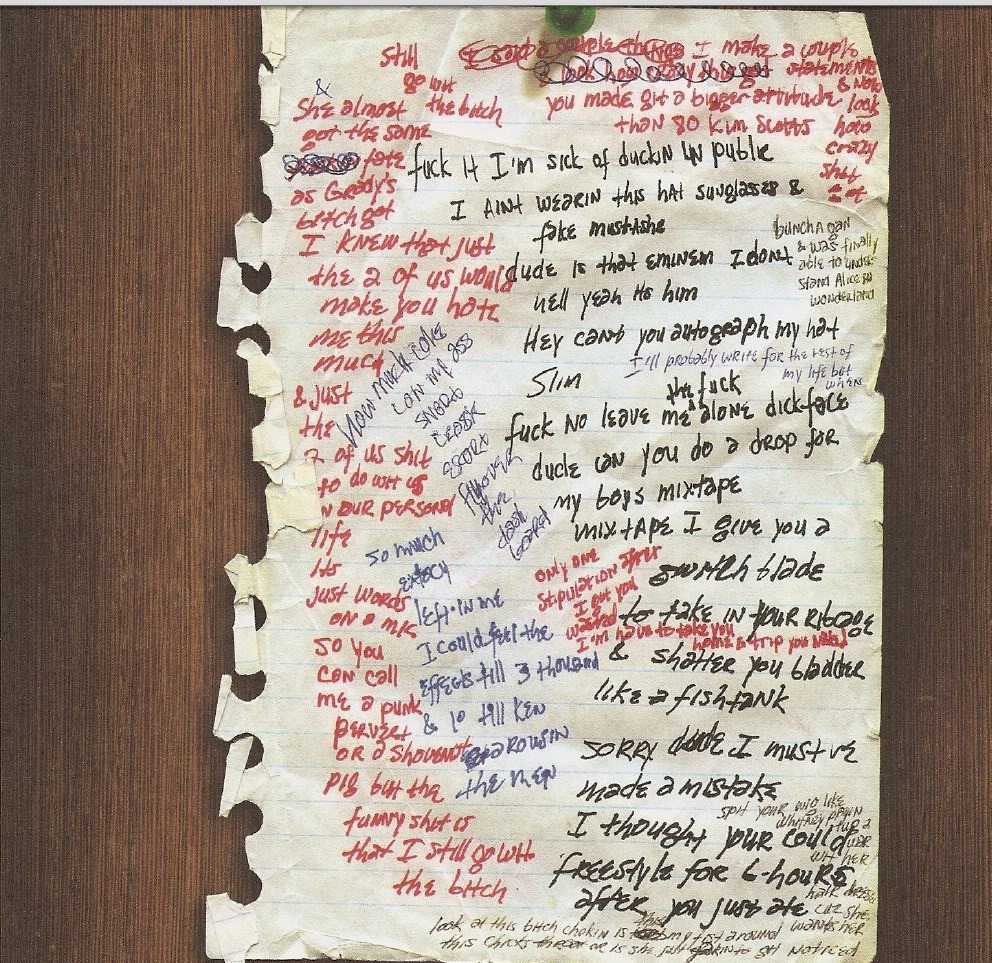 still
go wit
&
She almost the bitch
got the same
fate
as Grady's
bitch got
I KNEW that just
the 2 of us would
make you hate
me this
much
& just
the
2 of us shit
to do wit us
N OUR PERSONAl
life
its
just words
on a mic
so you
can call
me a punk
PERVERT
OR a Shovenist
pig but the
funny shit is
that I still go wit
the bitch
I said a couple things I make a couple
look how crazy shit got statements
& now
you made git a bigger attitude look
than 80 Kim Scotts how
crazy
shit
got
fuck it I'm sick of duckin UN public
I AINT WEARIN this hat sunglasses &
fake mustashe
dude is that eminem I dont
hell yeah its him
Hey cant you autograph my hat
Slim
the fuck
fuck No leave me alone dickface
dude can you do a drop for
my boys mixtape
mixtape I give you a
swith blade
to take in your Ribcage
& shatter you bladder
like a fishtank
sorry dude I must ve
made a mistake
I thought your could
freestyle for 6-hours
after you just ate
bunch A
& was finally
able to under
stand Alice in
wonderland
I'll probably write for the rest of
my life but
when
How much coke
can my ass
snort
the
dash
board
so much
extacy
left in me
I could feel the
effects till 3 thousand
& 10 till KEN
arousin
the men
only one
stipulation after
I got you
wasted
I'm have to take you
home & trip you NAked
spit your wig like
whitney
wit her
hair
cuz she
wants her
look at this bitch chokin is this my fist around
this chicks throat or is she just to git noticed